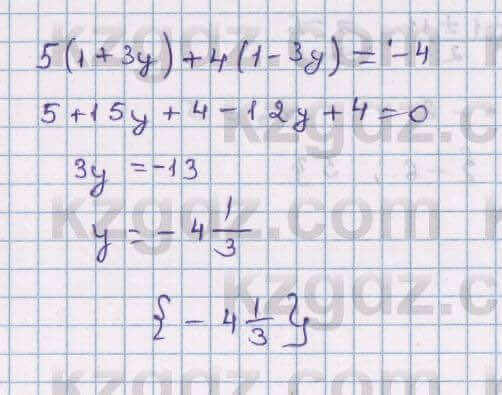 5(1+3y)+4(1-3y)=-4
5+15y+4-12y+4=0
3y=-13
y=-4 1/3
{-4 1/3}